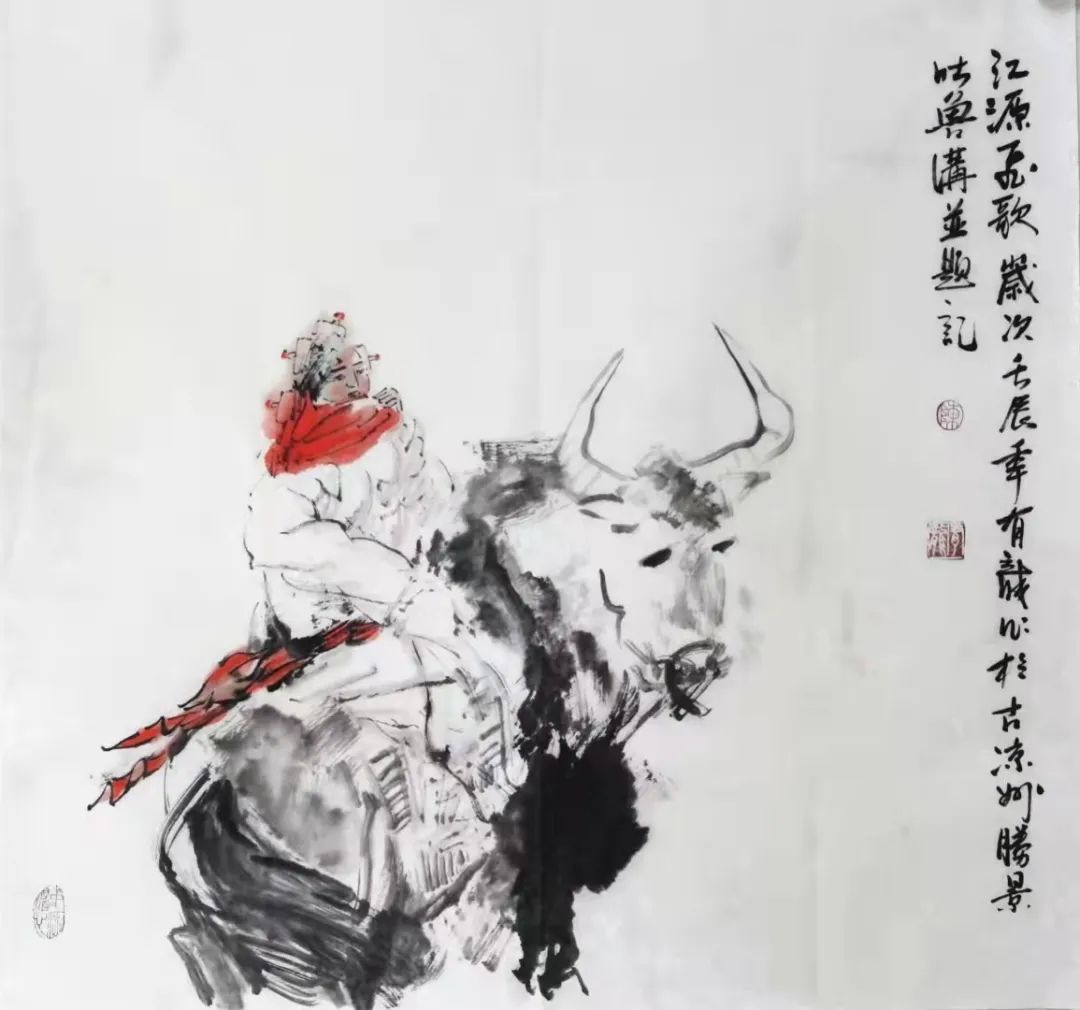 江源飛歌歲次壬辰年有龍作於古涼州勝景
吐魯溝並題記
陳